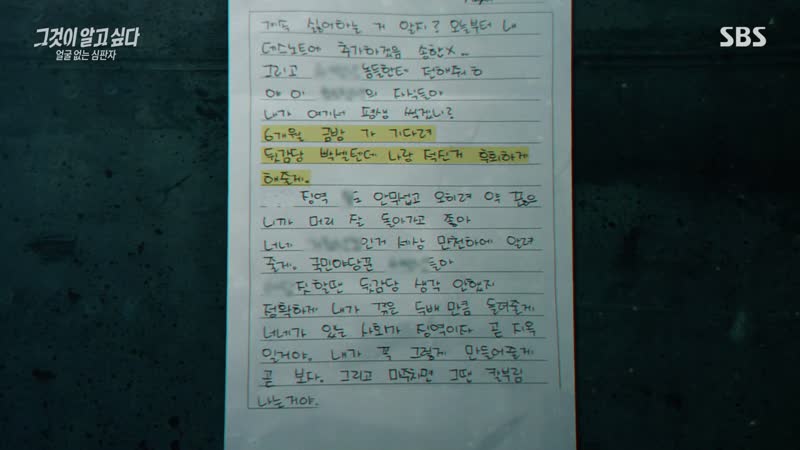 그것이 알고 싶다
얼굴 없는 심판자
SBS
계속 싫어하는 거 알지? 오늘부터 내
데스노트에 추가하겠음 송한X..
그리고 놈들한테 전해줘ㅎ
야 이 의 자식들아
내가 여기서 평생 썩겠니?
6개월 금방 가 기다려
뒷감당 빡셀텐데 나랑 척진거 후회하게
해줄게.
징역 도 안무섭고 오히려 끊은
니까 머리 잘 돌아가고 좋아
너네 인거 세상 만천하에 알려
줄게. 국민야당꾼 들아
짓 할땐 뒷감당 생각 안했지
정확하게 내가 겪은 두배만큼 돌려줄게
너네가 있는 사회가 징역이다 곧 지옥
일거야. 내가 꼭 그렇게 만들어줄게
곧 보자. 그리고 마주치면 그땐 칼부림
나는거야.